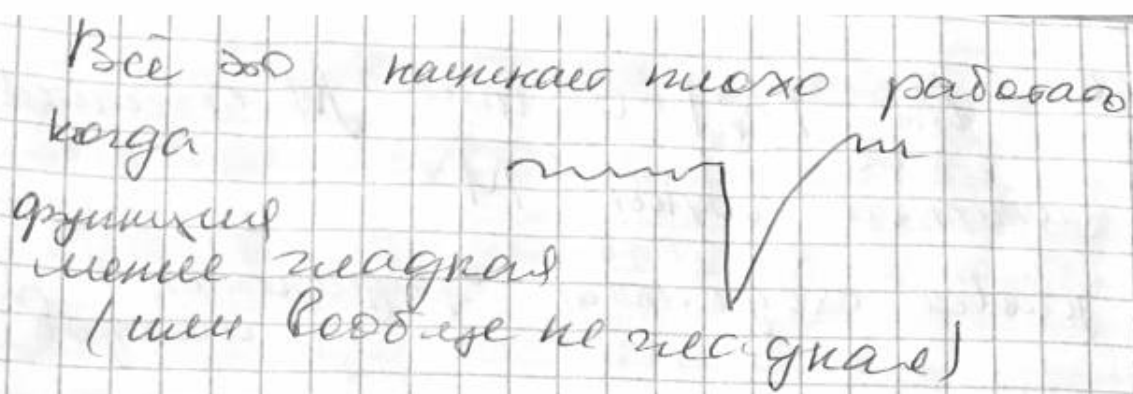 Всё это начинает плохо работать
когда
функция
менее гладкая
(или вообще не гладкая)